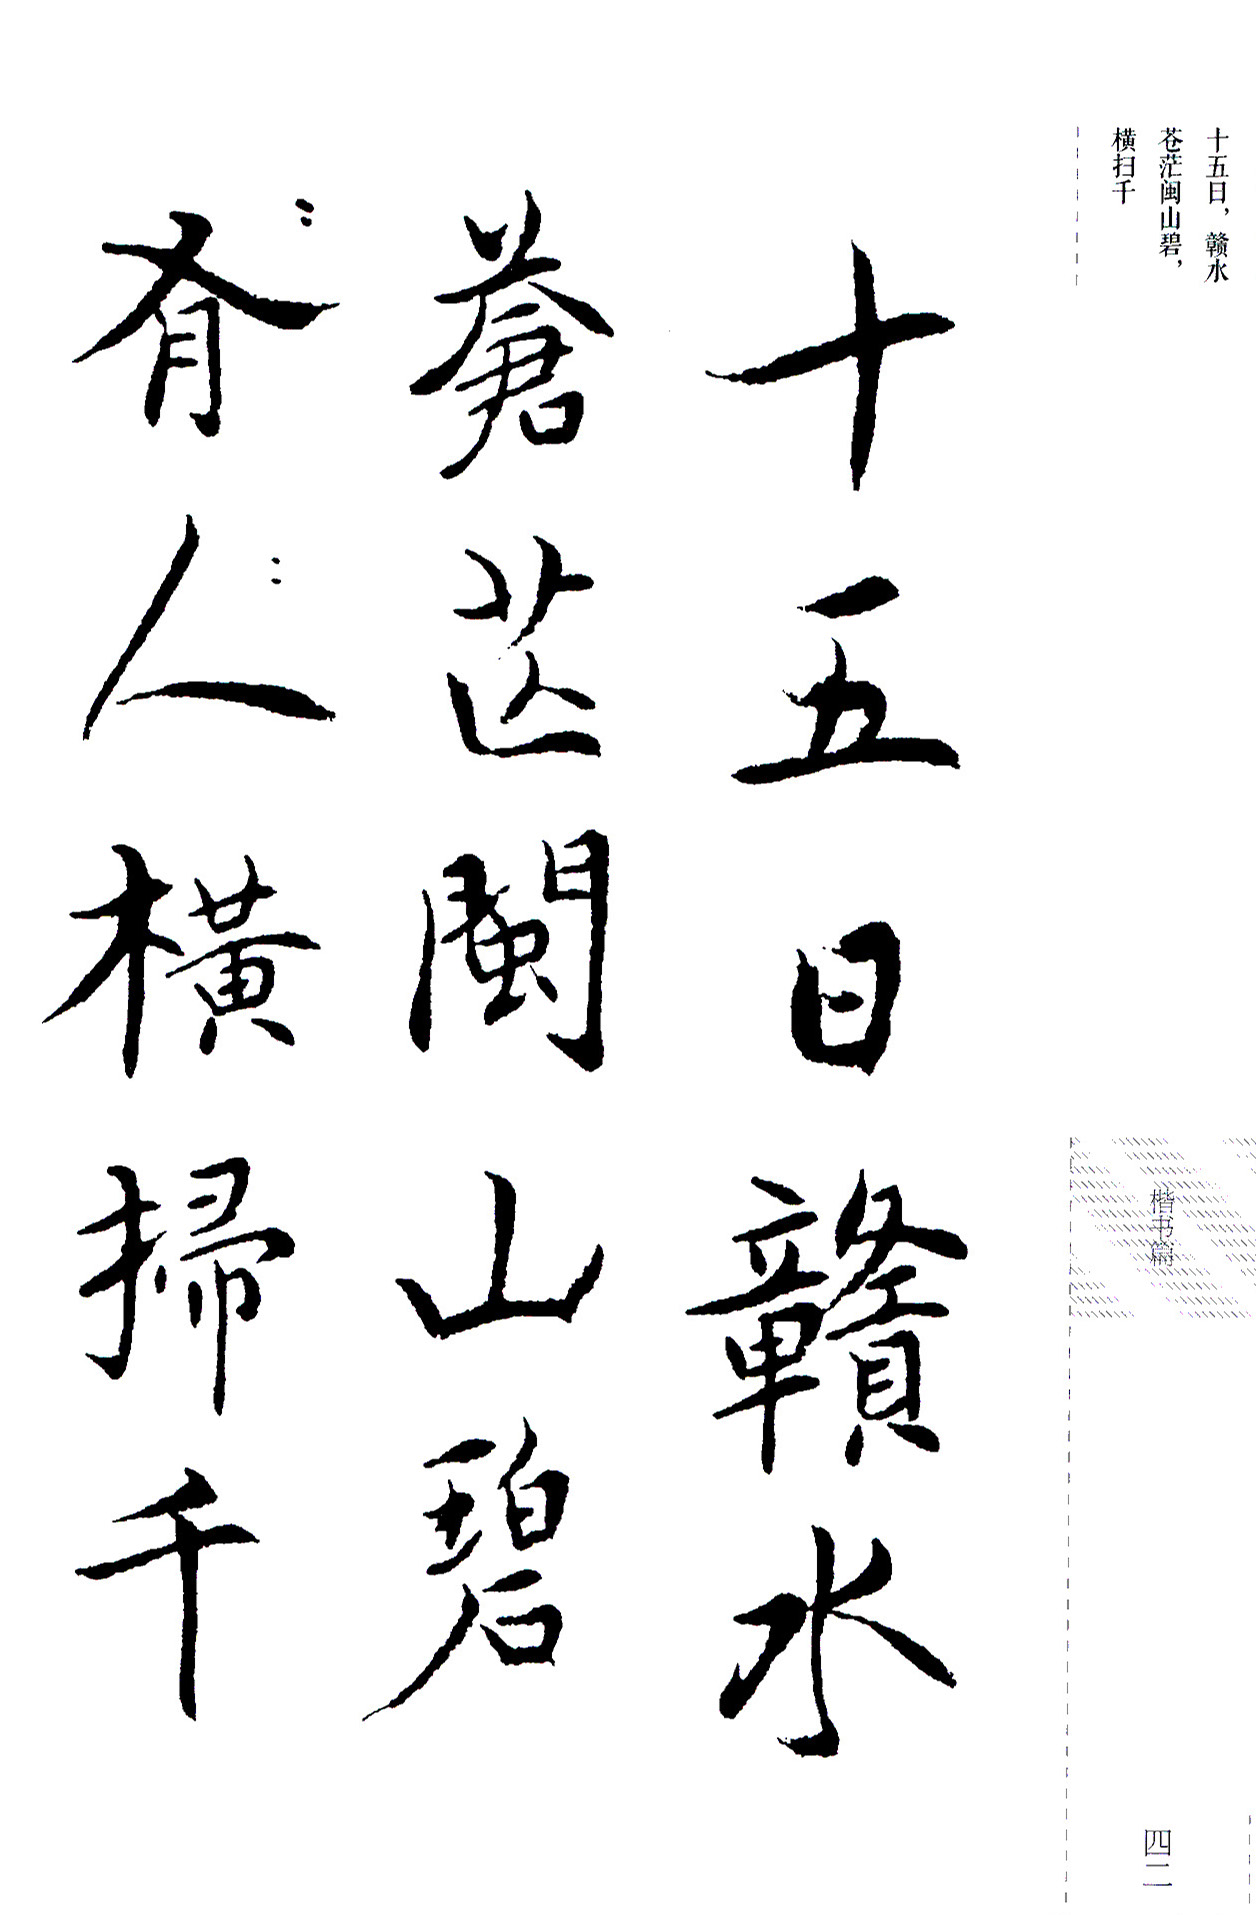 十五日，赣水
苍茫闽山碧，
横扫千
十五日贛水
蒼茫閩山碧
有人橫掃千
楷书篇
四二